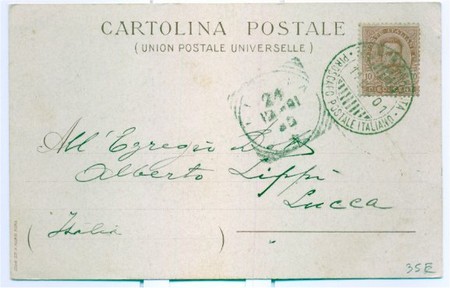 CARTOLINA POSTALE
(UNION POSTALE UNIVERSELLE)
10
PIROSCAFO POSTALE ITALIANO
24
All'Egregio Dott
Alberto Lippi
Lucca
(Italia)
35E